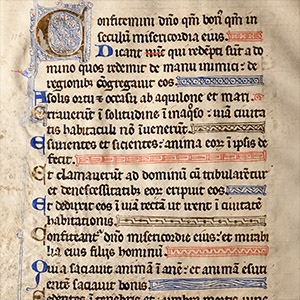 Confitemini dño qm̄ bonꝰ qm̄ in
seculū misericordia eius.
Dicant nūc qui redēpti sūt a do
mino quos redemit de manu inimici: de
regionibus cōgregauit eos.
A solis ortu ⁊ occasu ab aquilone et mari.
Errauerunt ī solitudine ī inaqͦso: uiā ciuita
tis habitaculi nō īuenerūt.
Esurientes et sicientes: anima eoꝝ ī ipsis de
fecit.
Et clamauerūt ad dominū cū tribularētur
et de necessitatibus eoꝝ eripuit eos
Et deduxit eos ī uiā rectā ut irent ī ciuitatē
habitationis.
Confiteantᷣ dño misericordie eius: et mirabi
lia eius filiis hominū.
Quia saciauit animā ī anē: et animā esuri
entē saciauit bonis
Sedentes ī tenebris et